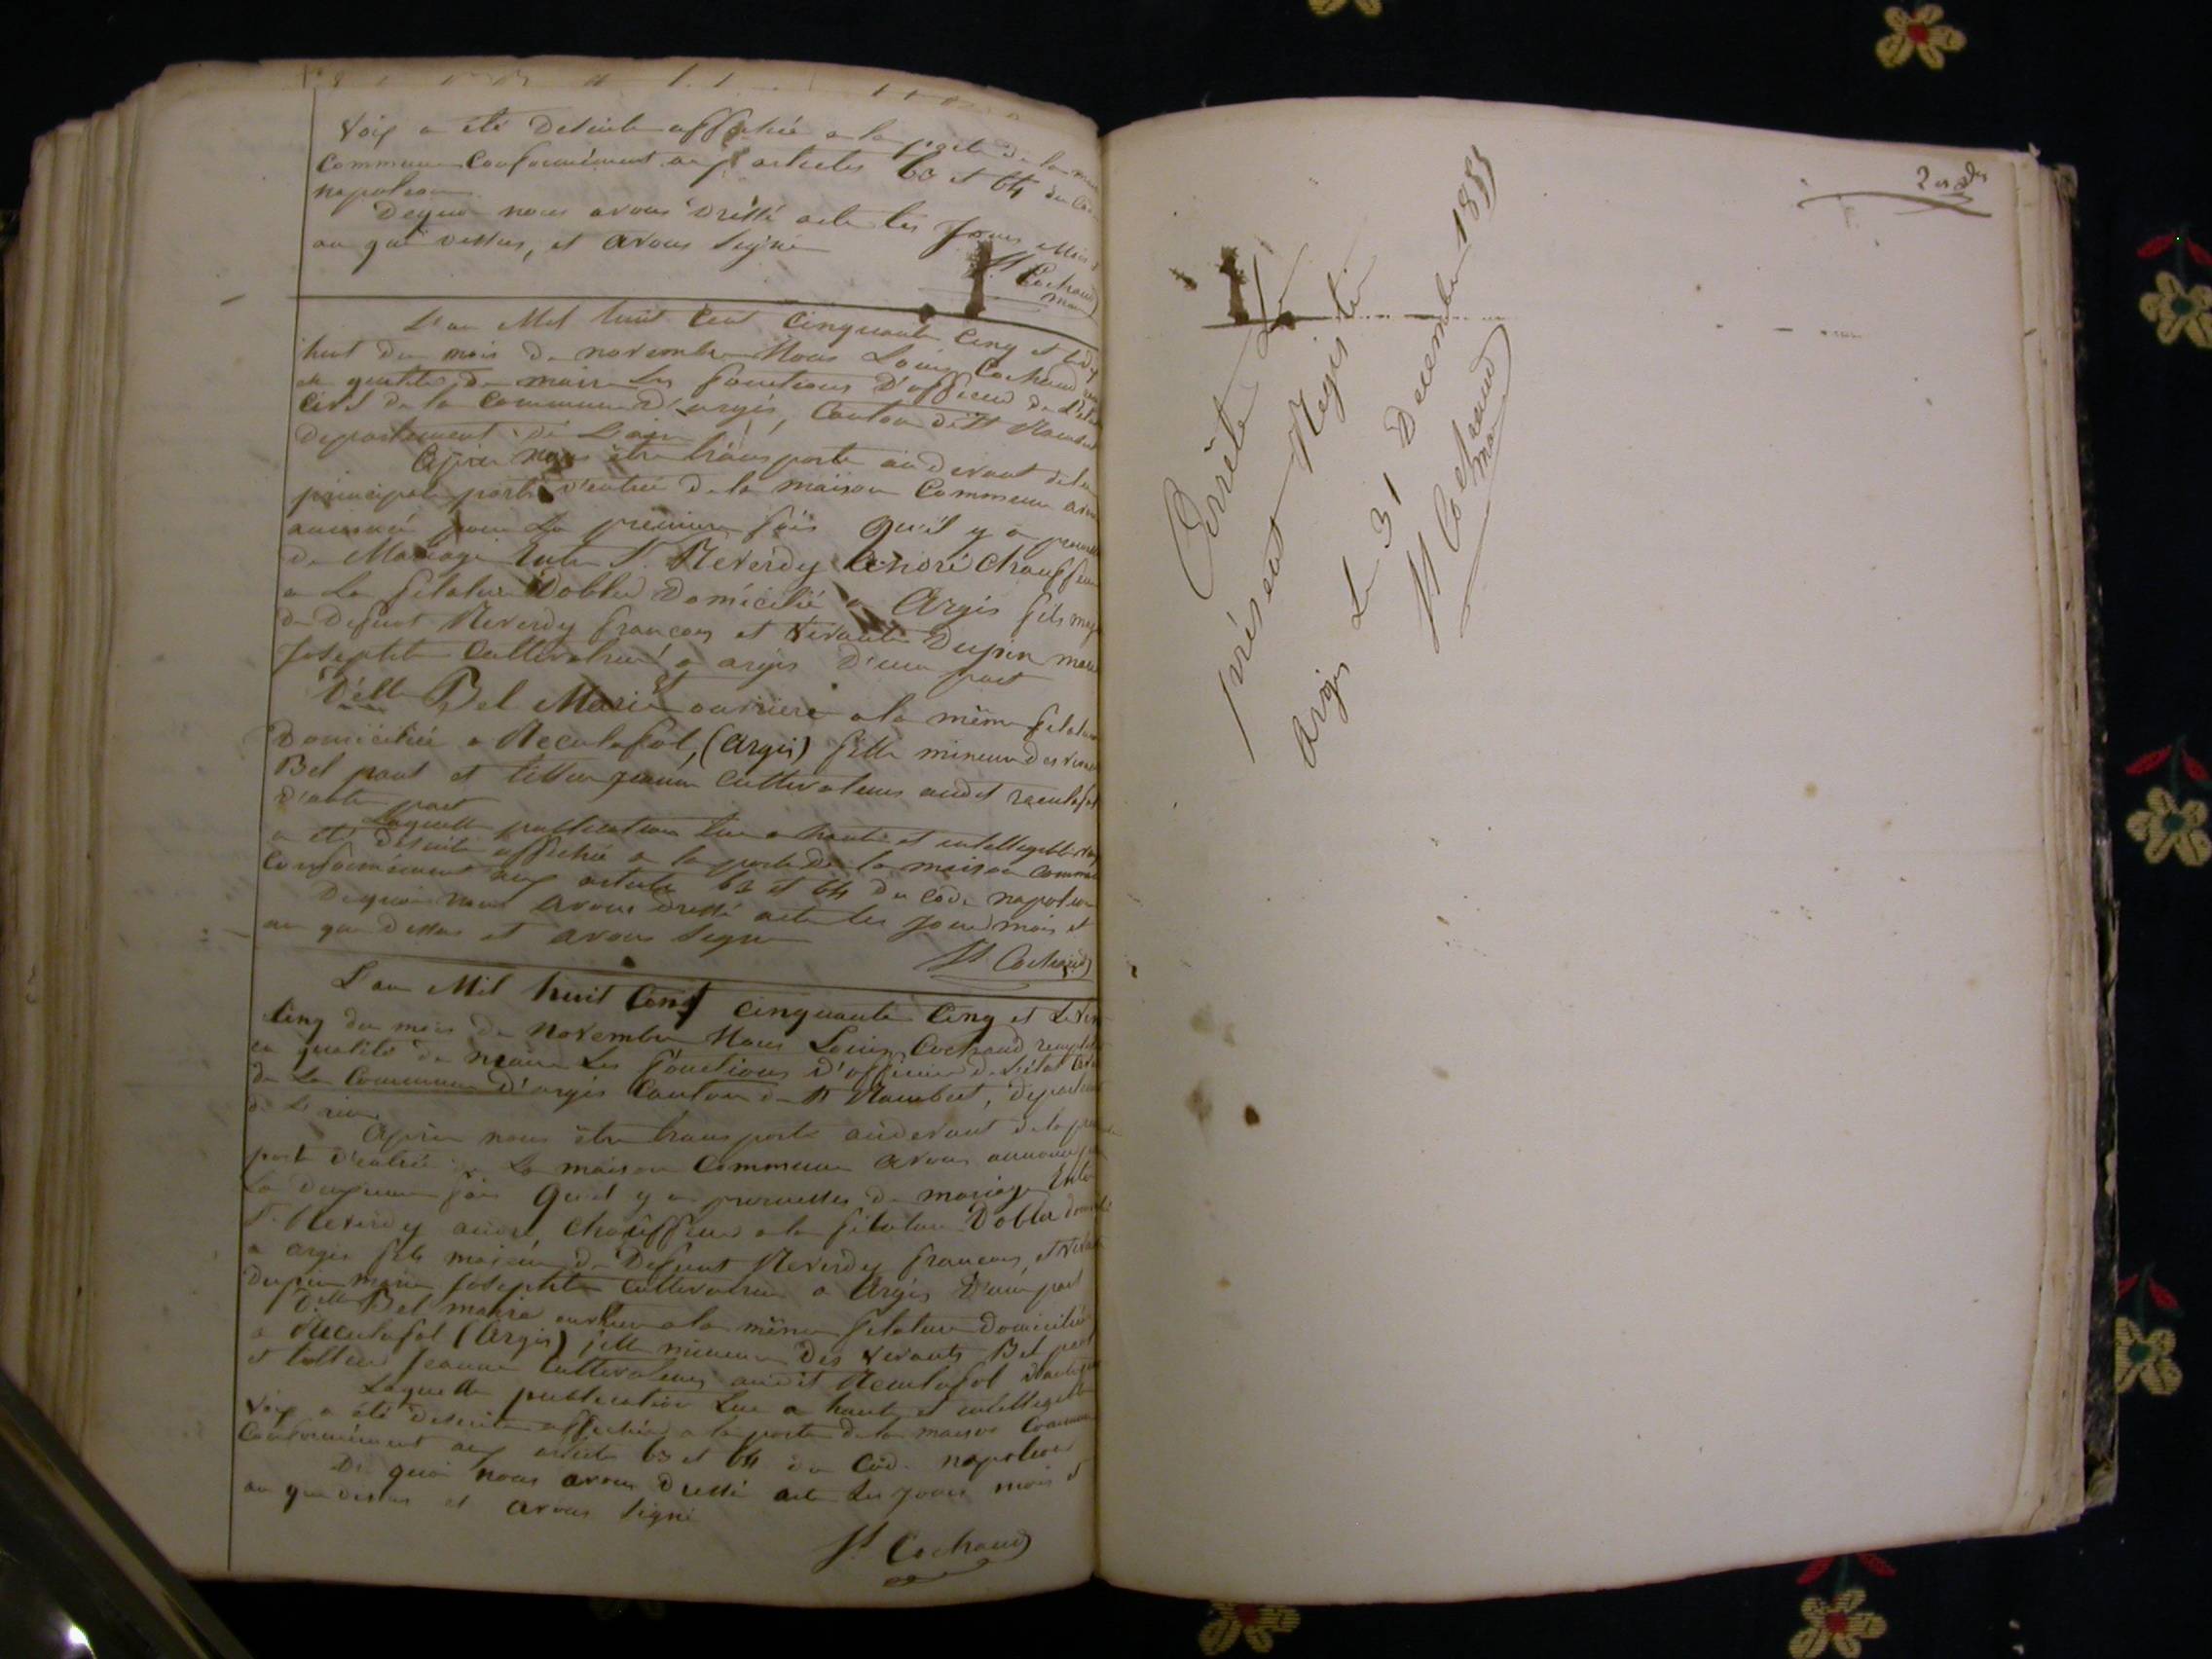 Voix a été desuite affichée a la porte de la
Commune Conformément aux articles 63 et 64 du
napoleon
Dequoi nous avons dressé acte les Jours Mois
an que dessus, et avons Signé
Cochaud
L'an Mil huit Cent Cinquante Cinq et le dix
huit du mois de novembre Nous Louis Cochaud
en qualité de maire les fonctions d'officier de l'état
Civil de la Commune d'argis, Canton de St Rambert
Departement de L'ain
Après nous être transporté au devant de la
principale porte d'entrée de la maison Commune
annoncé pour La premiere fois Qu'il y a
de Mariage Entre S. Reverdy chauffeur
a La filature Dobler Domicilié a Argis fils
De Defunt Reverdy francois et Vivante Dupin
Josephte Cultivatrice a argis D'une part
Et
D'elle Bel Marie ouvriere a la même filature
Domiciliée a Reculafol, (Argis) fille mineure des
Bel et jeanne Cultivateurs audit reculafol
D'autre part
Laquelle publication lue a haute et intelligible
a été desuite affichée a la porte de la maison
Conformément aux articles 63 et 64 du code napoleon
Dequoi nous avons dressé acte les jour mois et
an que Dessus et avons Signé
Cochaud
L'an Mil huit Cent cinquante Cinq et Le
Cinq du mois de Novembre Nous Louis Cochaud
en qualité de maire Les fonctions d'officier de L'état
de La Commune d'argis Canton de St Rambert,
de L'ain
Après nous être transporté au devant de la
porte d'entrée de La maison Commune avons
La deuxieme fois Qu'il y a promesses de mariage Entre
S. Reverdy chauffeur a la filature Dobler
a argis fils majeur de Defunt Reverdy francois, et
Dupin marie Josephte Cultivatrice a Argis D'une part
D'elle Bel marie ouvriere a la même filature Domiciliée
a Reculafol (Argis) fille mineure Des Vivants Bel
et Jeanne Cultivateurs audit Reculafol
Laquelle publication Lue a haute et intelligible
Voix a été desuite affichée a la porte de la maison Commune
Conformément aux articles 63 et 64 du Code napoleon
De quoi nous avons dressé acte Les jours mois et
an que dessus et avons signé
Cochaud
Arrêté Le
présent Régistre
argis Le 31 Decembre 1855
Cochaud